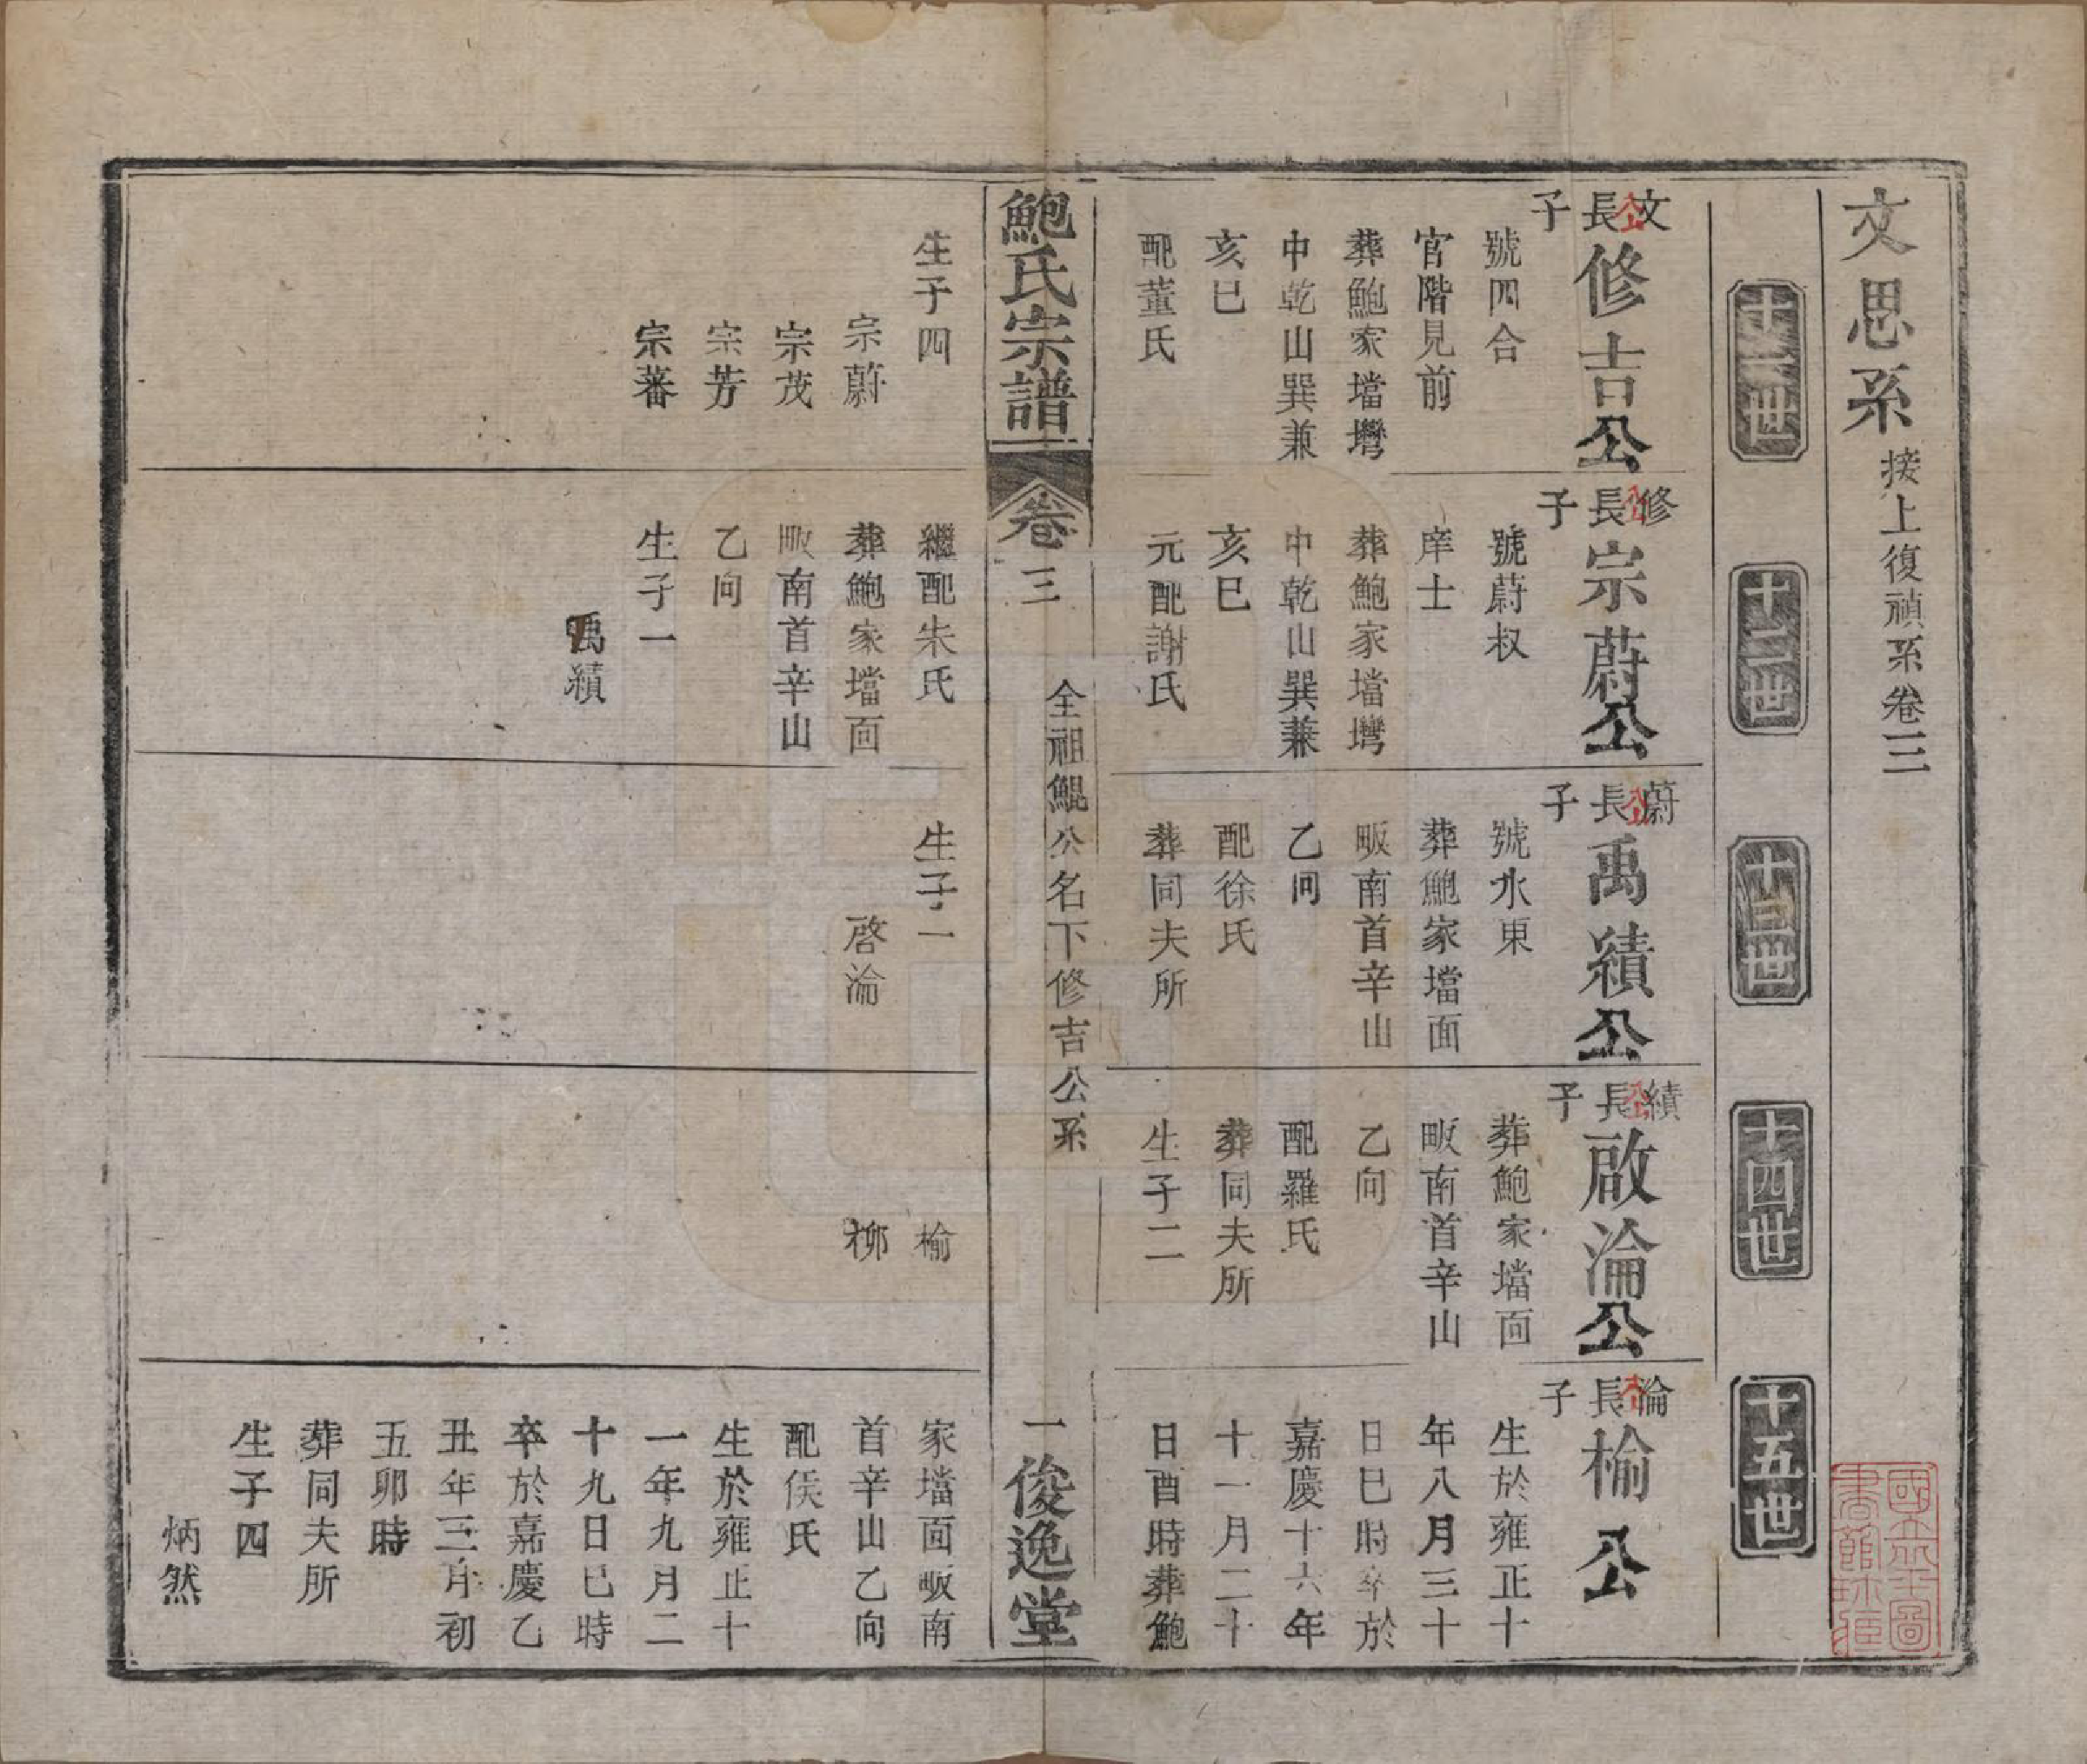 文思系 接上復禎系卷三
十一世
十二世
十三世
十四世
十五世
文公長子
修吉公
號四合
官階見前
葬鮑家壋壪
中乾山巽兼
亥巳
配董氏
生子四
宗蔚
宗茂
宗芳
宗蕃
修公長子
宗蔚公
號蔚叔
庠士
葬鮑家壋壪
中乾山巽兼
亥巳
元配謝氏
繼配朱氏
葬鮑家壋面
畈南首辛山
乙向
生子一
禹績
蔚公長子
禹績公
號水東
葬鮑家壋面
畈南首辛山
乙向
配徐氏
葬同夫所
生子一
啓淪
績公長子
啟淪公
葬鮑家壋面
畈南首辛山
乙向
配羅氏
葬同夫所
生子二
榆
柳
淪公長子
榆公
生於雍正十
年八月三十
日巳時卒於
嘉慶十六年
十一月二十
日酉時葬鮑
家壋面畈南
首辛山乙向
配侯氏
生於雍正十
一年九月二
十九日巳時
卒於嘉慶乙
丑年三月初
五卯時
葬同夫所
生子四
炳然
鮑氏宗譜 卷三 全祖鯤公名下修吉公系 一 俊逸堂